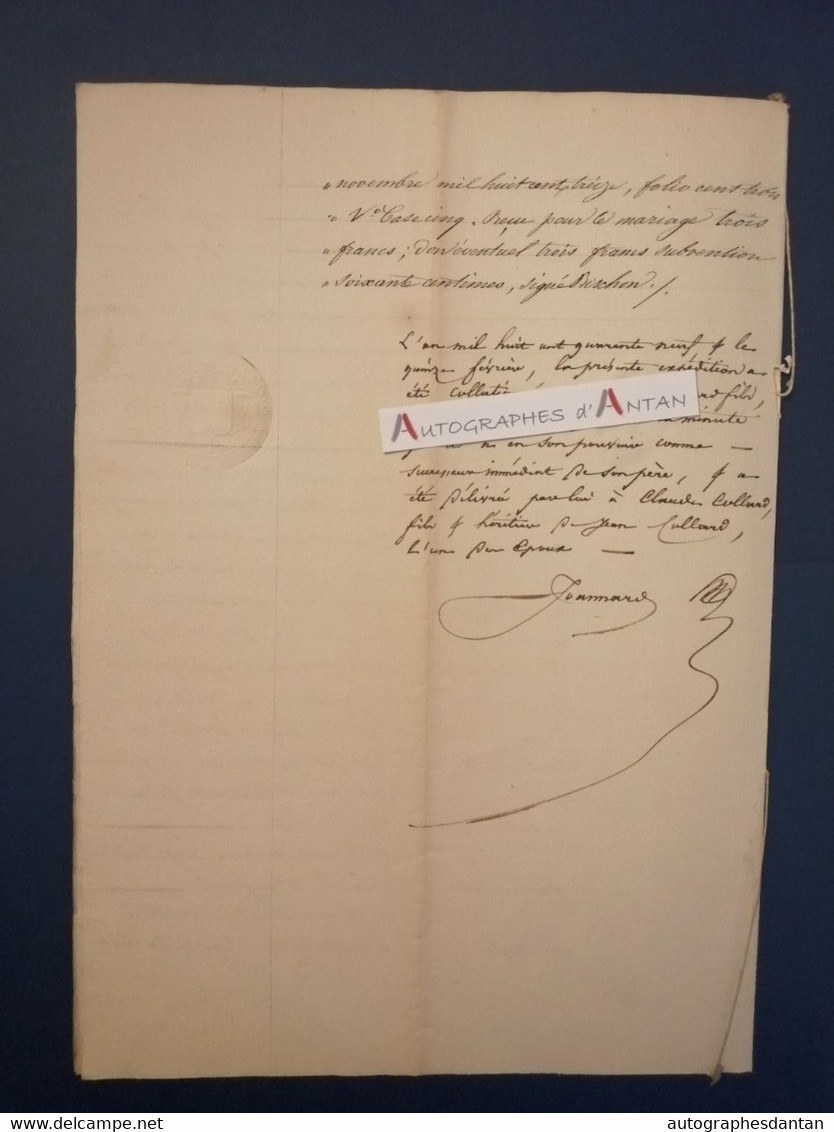 " novembre mil huit cent treize, folio cent trois
" V.º Case cinq. Reçu pour le mariage trois
" francs; don éventuel trois francs subvention
" soixante centimes, signé Buchon ./.
L'an mil huit cent quarante neuf & le
quinze février, la présente expédition a
été
AUTOGRAPHES d'ANTAN
minute
en son pouvoir comme —
successeur immédiat de son père, & a
été délivrée par lui à Claude Collard,
fils & héritier de Jean Collard,
l'un des Epoux —
Joannard
delcampe.net
autographesdantan